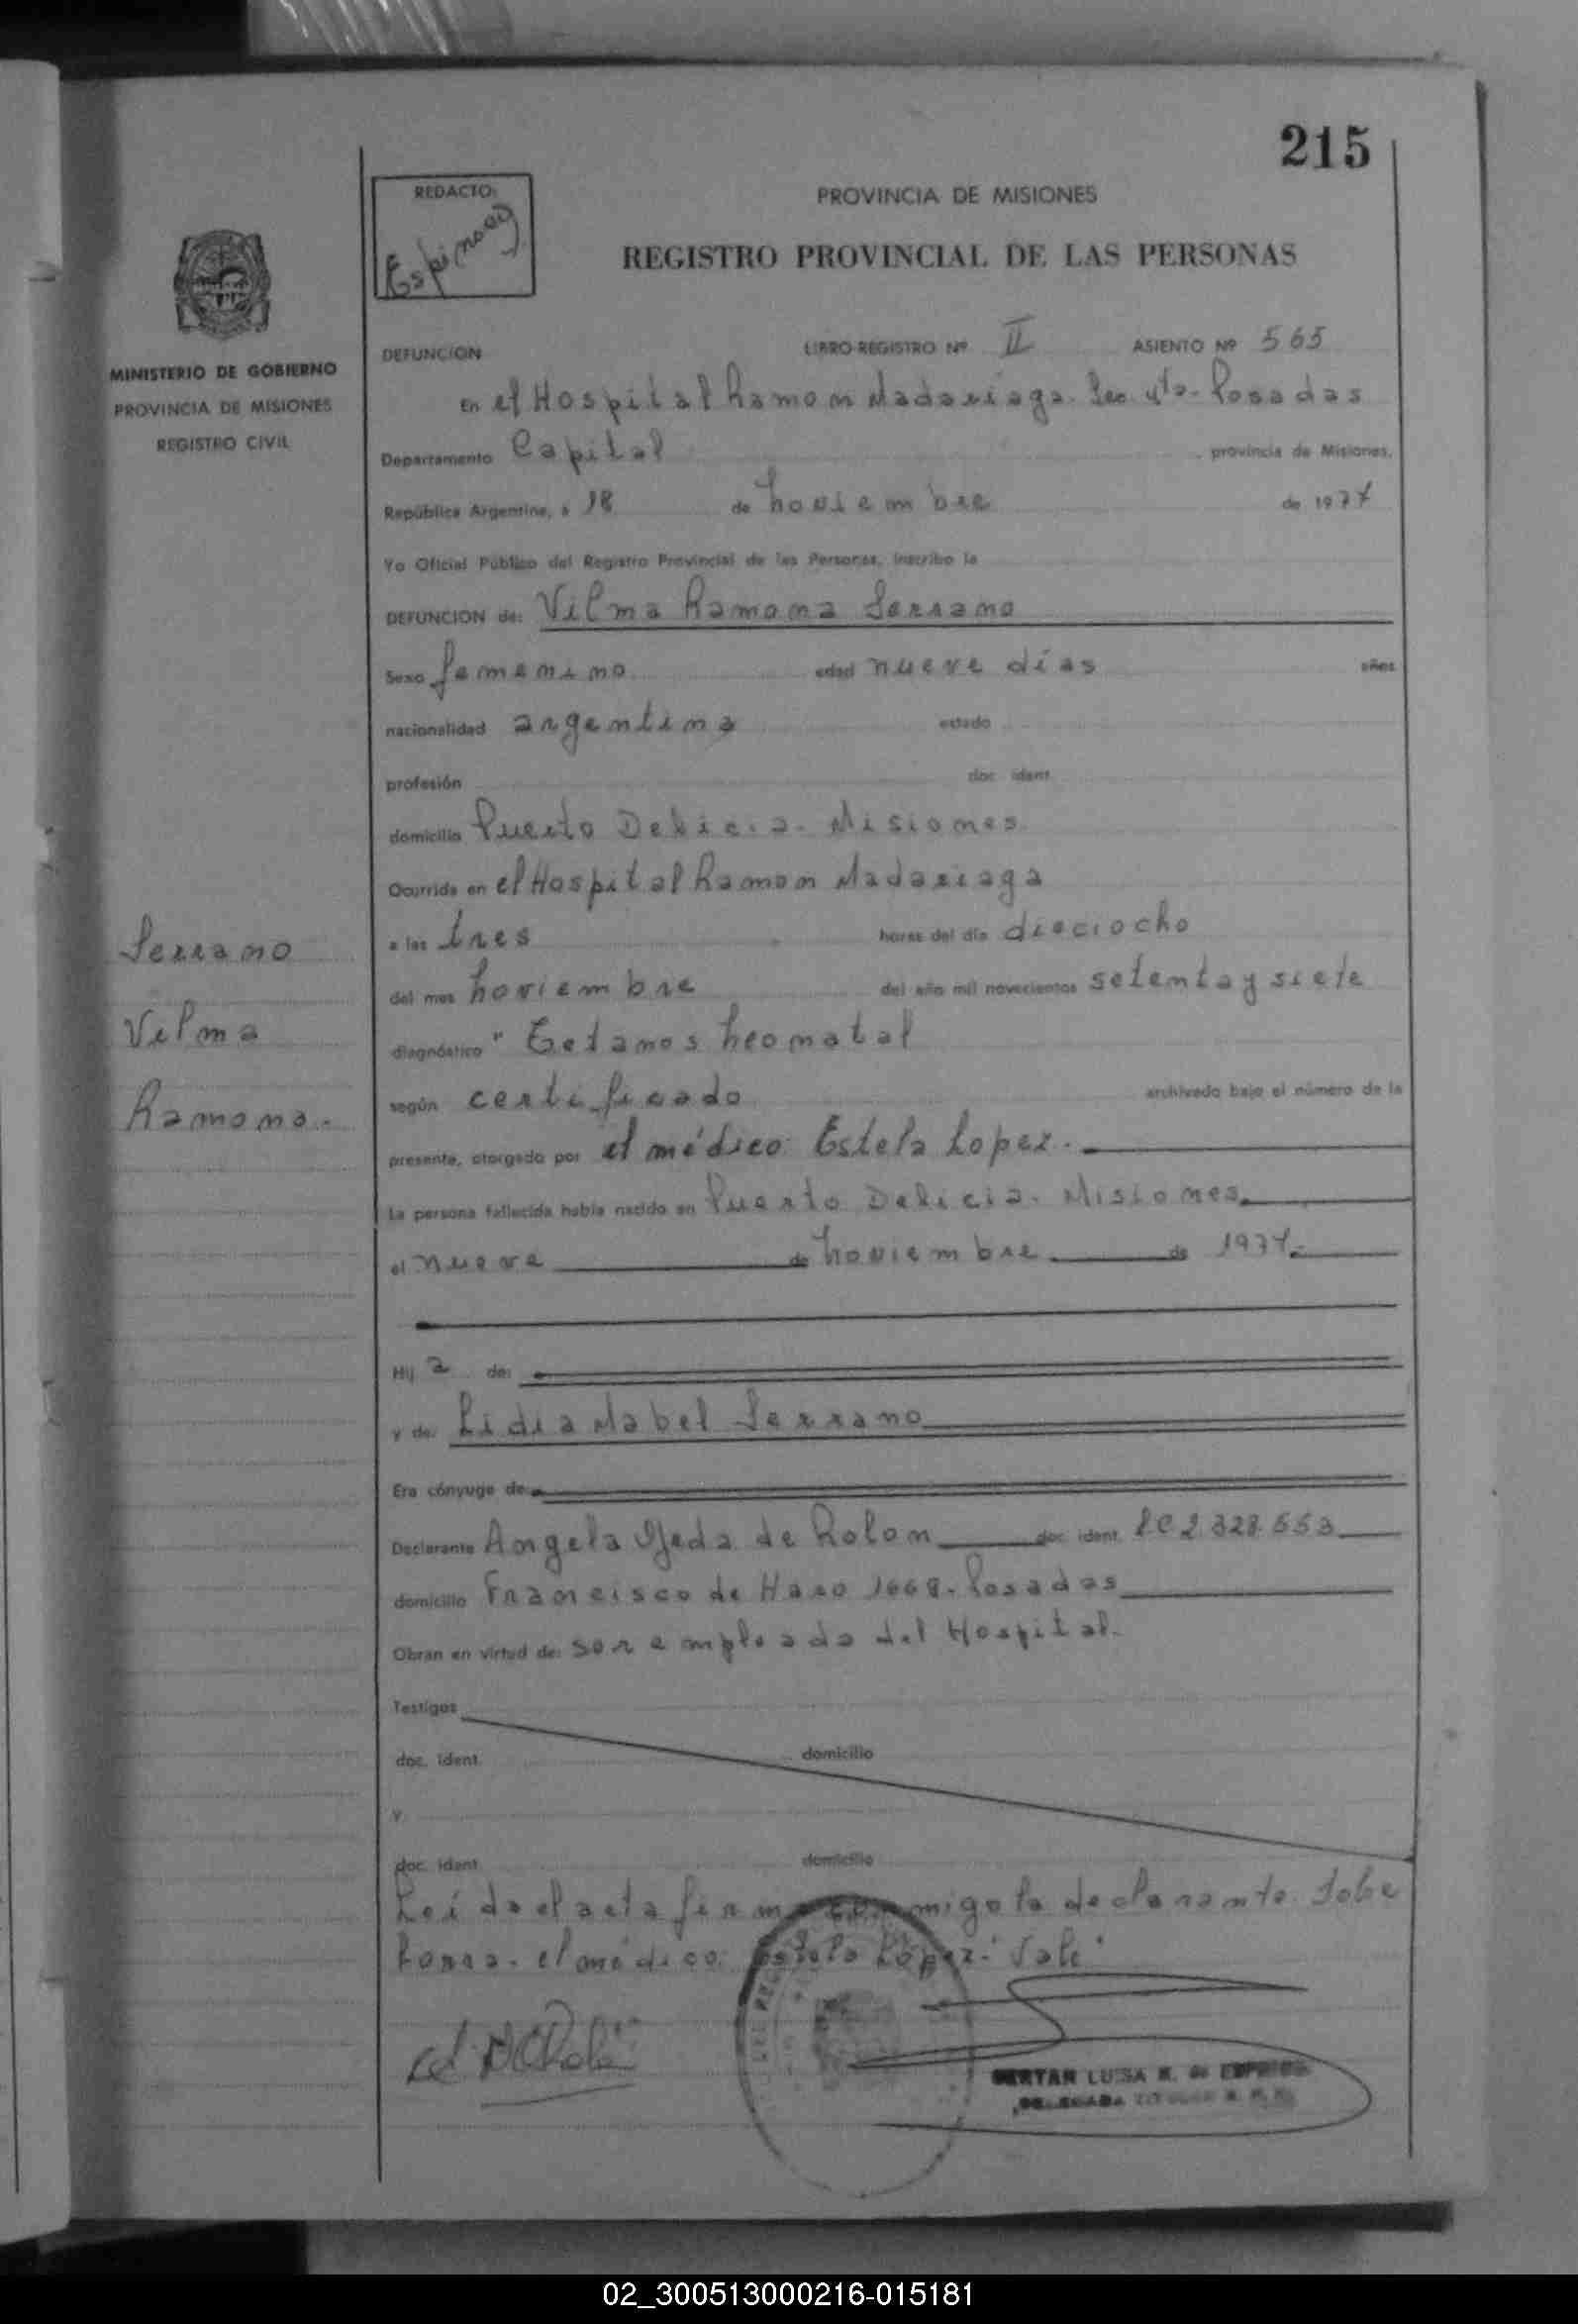 215
REDACTO:
PROVINCIA DE MISIONES
REGISTRO PROVINCIAL DE LAS PERSONAS
MINISTERIO DE GOBIERNO
PROVINCIA DE MISIONES
REGISTRO CIVIL
DEFUNCION LIBRO-REGISTRO Nº II ASIENTO Nº 565
En el Hospital Ramon Madariaga. Sec. 4ta- Posadas
Departamento Capital provincia de Misiones.
República Argentina, a 18 de noviembre de 1977
Yo Oficial Público del Registro Provincial de las Personas, inscribo la
DEFUNCION de: Vilma Ramona Serrano
Sexo femenino edad nueve días años
nacionalidad argentina estado
profesión doc. ident.
domicilio Puerto Delicia. Misiones
Ocurrida en el Hospital Ramon Madariaga
a las tres horas del día dieciocho
del mes noviembre del año mil novecientos setenta y siete
diagnóstico " Tetanos neonatal
según certificado archivado bajo el número de la
presente, otorgado por el médico: Estela Lopez.
La persona fallecida había nacido en Puerto Delicia. Misiones.
el nueve de noviembre de 1977.-
Hij a de:
y de: Lidia Mabel Serrano
Era cónyuge de
Declarante Angela Ojeda de Rolon doc. ident. LC 2.328.553
domicilio Francisco de Haro 1668- Posadas
Obran en virtud de: ser empleada del Hospital.
Testigos
doc. ident. domicilio
y
doc. ident. domicilio
Leída el acta firma conmigo la declarante. Sobre
borra- el médico: Estela López: Vale
Serrano
Vilma
Ramona.-
LUISA
02_300513000216-015181